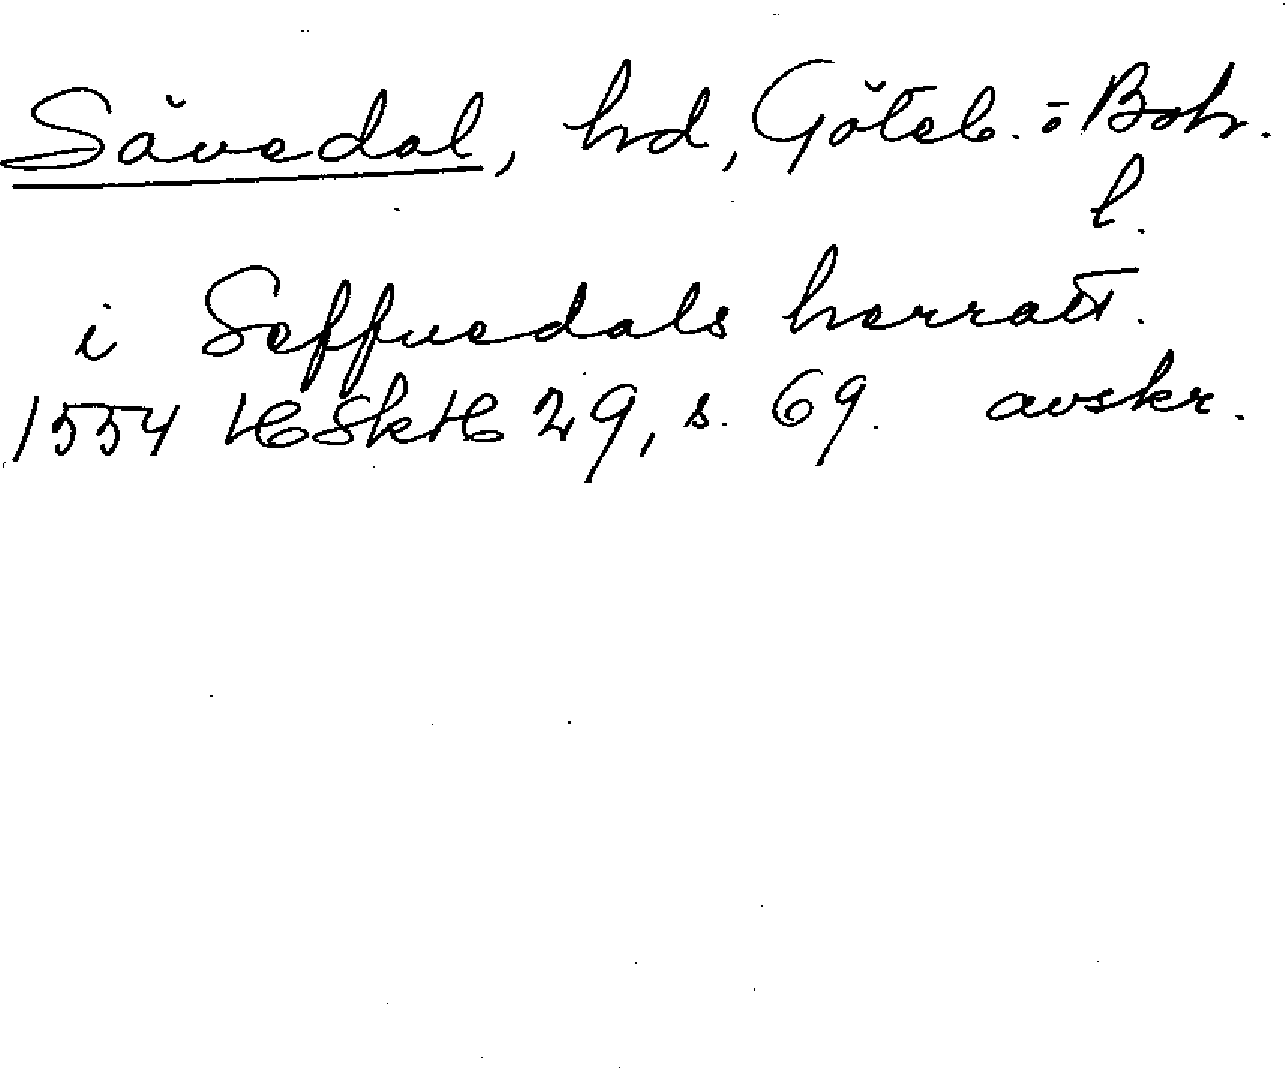 Sävedal, hd, Göteb. o Boh.
l.
i Seffuedals herratt.
1554 HSkH 29, s. 69. avskr.